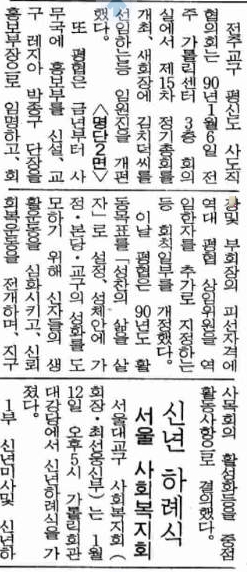 전주교구 평신도 사도직
협의회는 90년 1월 6일 전
주 가톨릭센타 3층 회의
실에서 제15차 정기총회를
개최、새회장에 김치덕씨를
선임한는등 임원진을 개편
했다。 〈명단2면〉
또 평협은 금년부터 사
무국에 홍보부를 신설、교
구 레지아 박종구 단장을
홍보부장으로 임명하고、회
장및 부회장의 피선자격에
역대 평협 상임위원을 역
임한자를 추가로 지정하는
등 회칙일부를 개정했다。
이날 평협은 90년도 활
동목표를「성찬의 삶을 살
자」로 설정、성체안에 가
정・본당・교구의 성화를 도
모하기 위해 신자들의 생
활운동을 심화시키고、신뢰
회복운동을 전개하며、지구
사목회의 활성화등을 중점
활동사항으로 결의했다。
신년 하례식
서울 사회복지회
서울대교구 사회복지회(
회장・최선웅신부)는 1월
12일 오후5시 가톨릭회관
대강당에서 신년하례식을 가
졌다。
1부 신년미사및 신년하